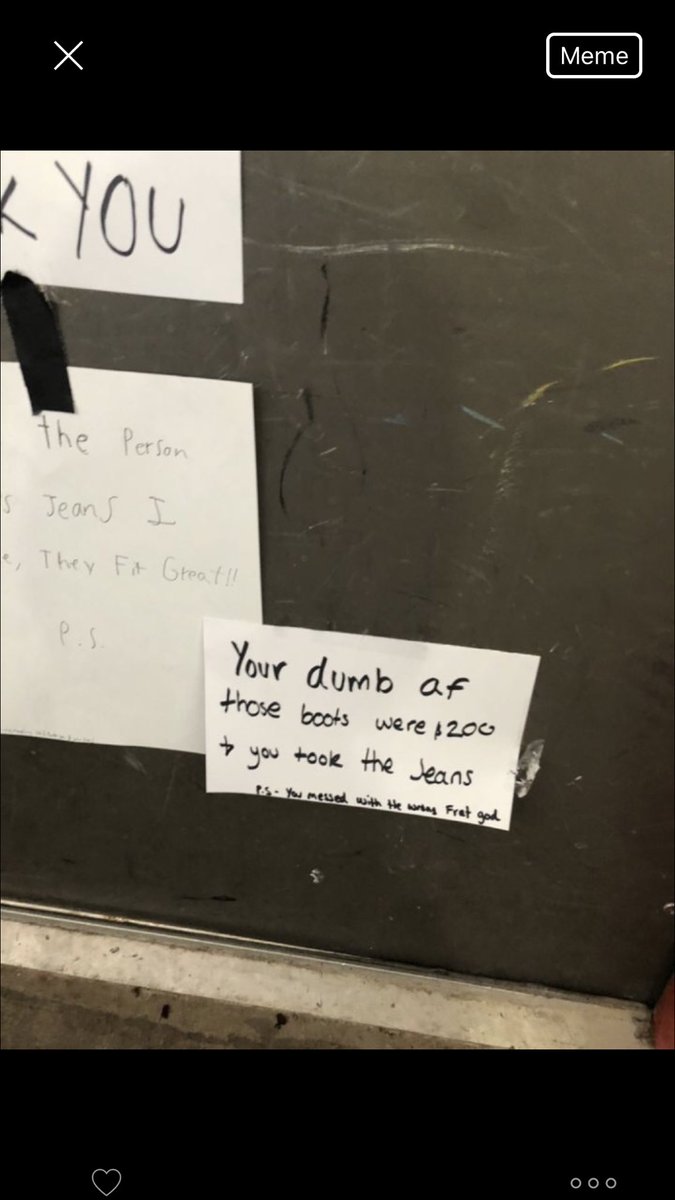 Meme
K YOU
the Person
s Jeans I
e, They Fit Great!!
P.S.
Your dumb af
those boots were $200
+ you took the Jeans
P.S - You messed with the wrong Frat god